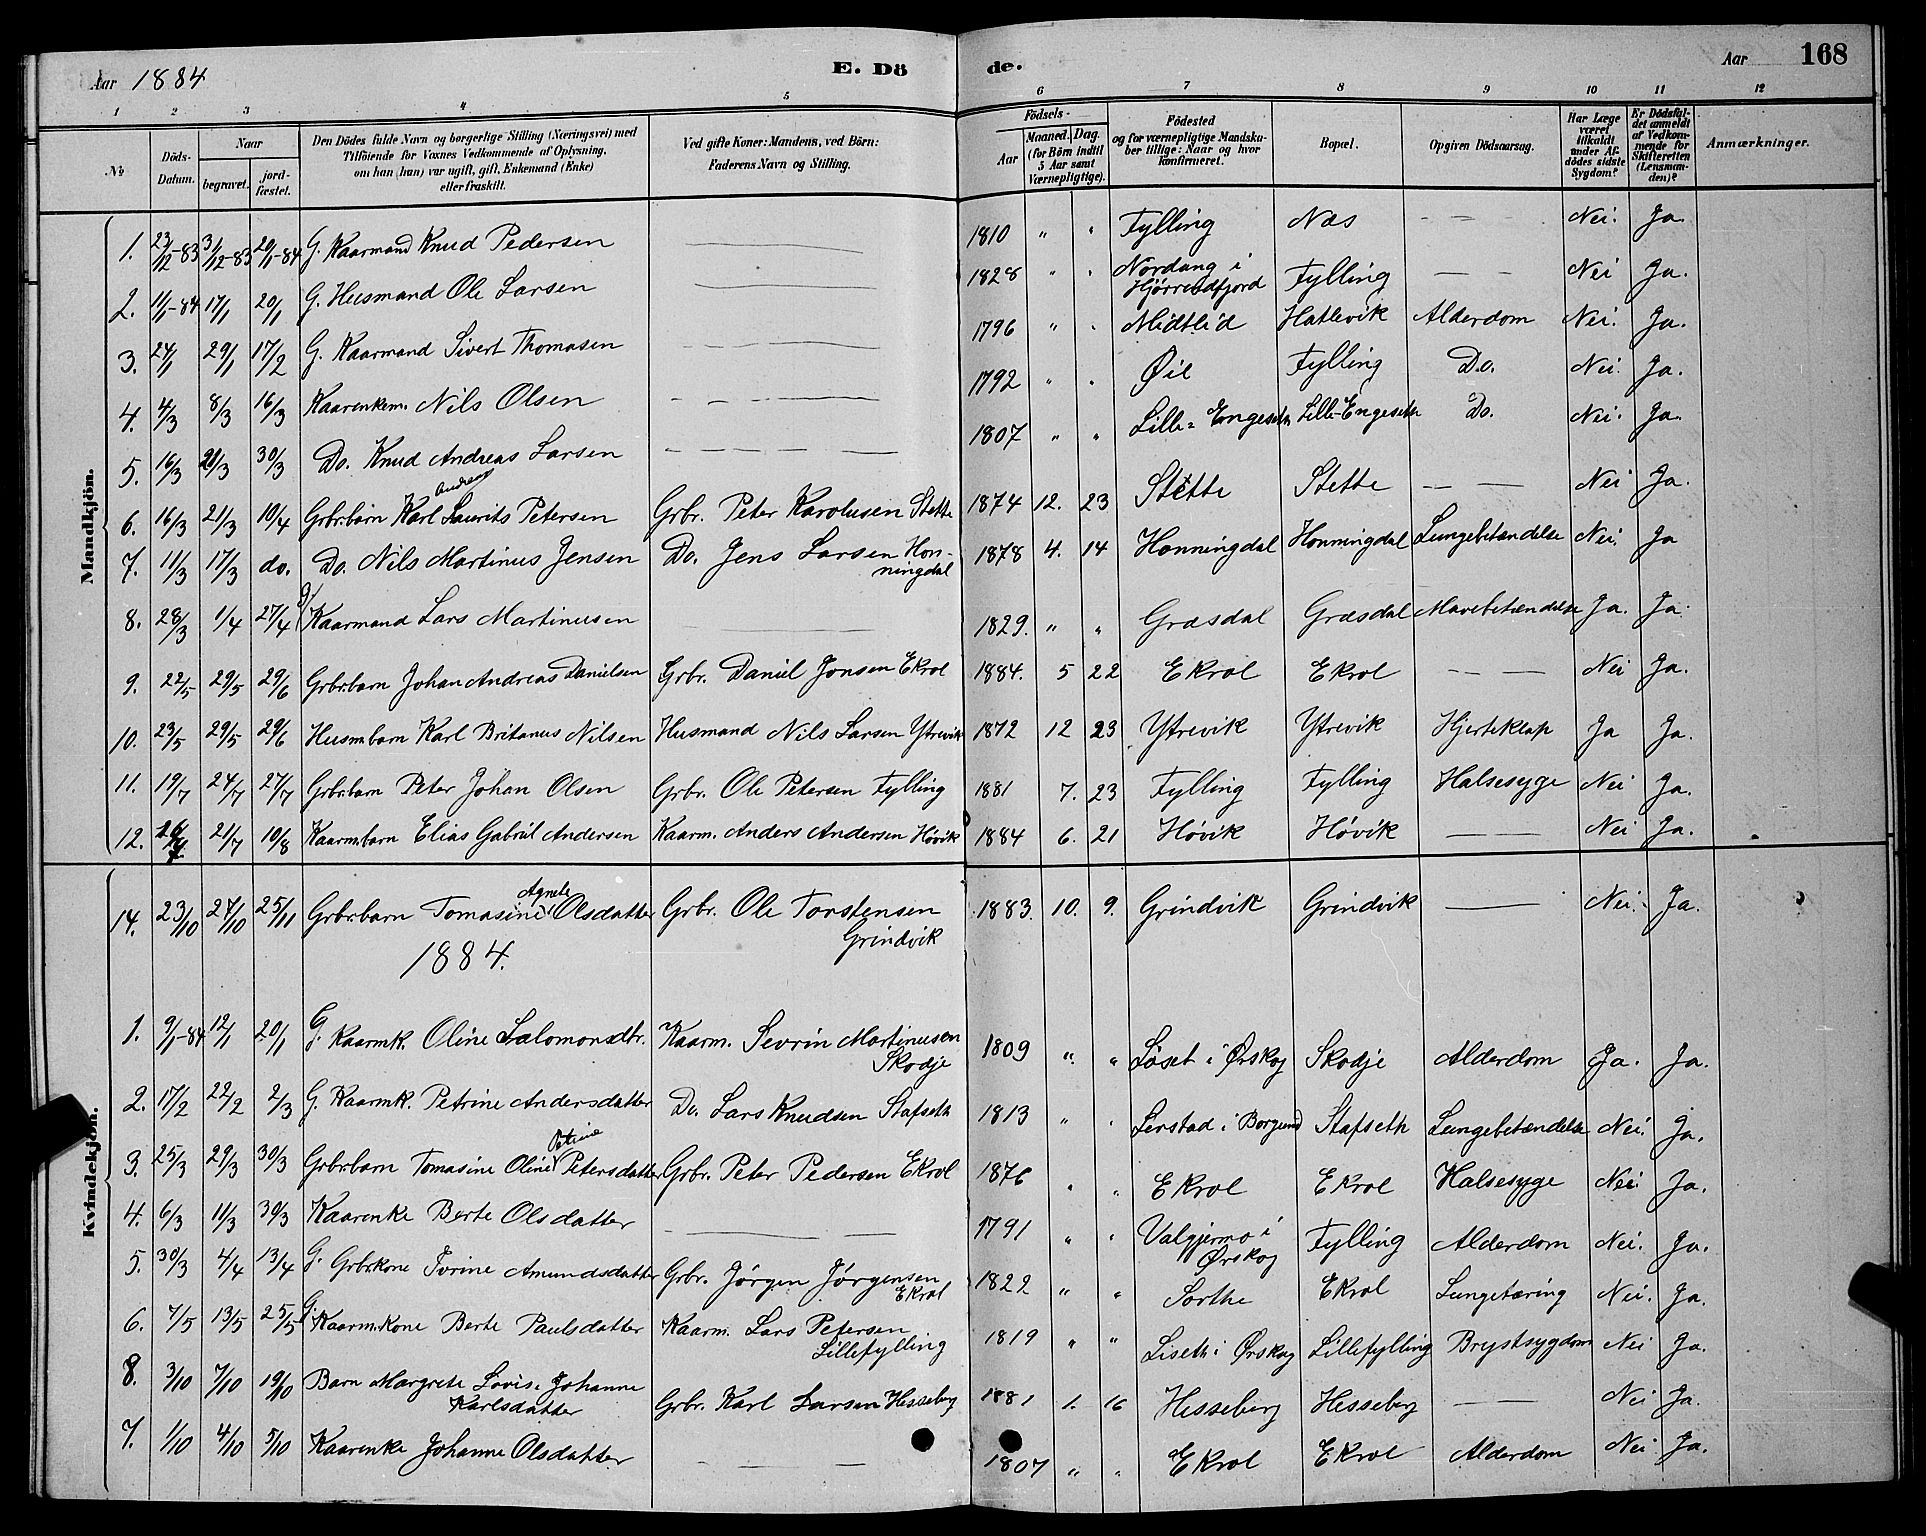 Aar 1884 E. Dö de. Aar 168
1 2 3 4 5 6 7 8 9 10 11 12
No Döds-Datum. Naar begravet. jord-fæstet. Den Dödes fulde Navn og borgerlige Stilling (Næringsvei) med Tilföiende for Voxnes Vedkommende af Oplysning, om han (hun) var ugift, gift, Enkemand (Enke) eller fraskilt. Ved gifte Koner: Mandens, ved Börn: Faderens Navn og Stilling. Födsels- Aar Maaned. Dag. (for Börn indtil 5 Aar samt Værnepligtige). Födested og for værnepligtige Mandskaber tillige: Naar og hvor konfirmeret. Bopæl. Opgiven Dödsaarsag. Har Læge været tilkaldt under Afdödes sidste Sygdom? Er Dödsfaldet anmeldt af Vedkommende for Skifteretten (Lensmanden)? Anmærkninger.
Mandkjön.
1. 23/12-83 3/12-83 20/1-84 G. Kaarmand Knud Pedersen — 1810 " " Fylling Næs — Nei. Ja.
2. 11/1-84 17/1 20/1 G. Husmand Ole Larsen — 1828 " " Nordang i Hjørrendfjord Fylling — Nei Ja.
3. 24/1 29/1 17/2 G. Kaarmand Sivert Thomasen — 1796 " " Midtlid Hatlevik Alderdom Nei. Ja.
4. 4/3 8/3 16/3 Kaarenkem. Nils Olsen — 1792 " " Øie Fylling Do. Nei. Ja.
5. 16/3 21/3 30/3 Do. Knud Andreas Larsen — 1807 " " Lille-Engeseth Lille-Engeseth Do. Nei. Ja.
6. 16/3 21/3 10/4 Grbr.barn Karl Andreas Laurits Petersen Grbr. Peter Karolusen Stette 1874 12. 23 Stette Stette — Nei Ja.
7. 11/3 17/3 do. Do. Nils Martinus Jensen Do. Jens Larsen Honningdal 1878 4. 14 Honningdal Honningdal Lungebetændelse Nei. Ja
8. 28/3 1/4 27/4 G. Kaarmand Lars Martinusen — 1829. " " Græsdal Græsdal Mavebetændelse Ja. Ja.
9. 22/5 29/5 29/6 Grbr.barn Johan Andreas Danielsen Grbr. Daniel Jonsen Ekrol 1884. 5 22 Ekrol Ekrol — Nei Ja.
10. 23/5 29/5 29/6 Husm.barn Karl Britanus Nilsen Husmand Nils Larsen Ytrevik 1872 12 23 Ytrevik Ytrevik Hjerteklap Ja Ja.
11. 19/7 24/7 27/7 Grbr.barn Peter Johan Olsen Grbr. Ole Petersen Fylling 1881 7. 23 Fylling Fylling Halsesyge Nei Ja.
12. 21/7 10/8 Kaarm.barn Elias Gabriel Andersen Kaarm. Anders Andersen Hóvik 1884 6. 21 Hóvik Hóvik — Nei Ja.
14. 23/10 27/10 25/11 Grbr.barn Tomasine Agnete Olsdatter Grbr. Ole Torstensen Grindvik 1883. 10. 9. Grindvik Grindvik — Nei. Ja.
1884.
Kvindekjön.
1. 9/1-84 12/1 20/1 G. Kaarmk. Oline Salomonsdtr. Kaarm. Sevrin Martinusen Skodje 1809 " " Løset i Ørskog Skodje Alderdom Ja. Ja.
2. 17/2 22/2 2/3 G. Kaarmk. Petrine Andersdatter Do. Lars Knudsen Stafseth 1813 " " Lerstad i Borgund Stafseth Lungebetændelse Nei. Ja.
3. 25/3 29/3 30/3 Grbr.barn Tomasine Oline Petrine Petersdatter Grbr. Peter Pedersen Ekrol 1876 " " Ekrol Ekrol Halsesyge Nei Ja.
4. 6/3 11/3 30/3 Kaarenke Berte Olsdatter — 1791 " " Valgjermo i Ørskog Fylling Alderdom Nei. Ja.
5. 30/3 4/4 13/4 G. Grbrkone Turine Amundsdatter Grbr. Jørgen Jørgensen Ekrol 1822 " " Sorthe Ekrol Lungetæring Nei. Ja.
6. 7/5 13/5 25/5 G. Kaarm.kone Berte Paulsdatter Kaarm. Lars Petersen Lillefylling 1819 " " Liseth i Ørskog Lillefylling Brystsygdom Nei Ja.
8. 3/10 7/10 19/10 Barn Margrete Lovise Johanne Karlsdatter Grbr. Karl Larsen Hesseberg 1881 1. 16 Hesseberg Hesseberg — Nei Ja.
7. 1/10 4/10 5/10 Kaarenke Johanne Olsdatter — 1807 " " Ekrol Ekrol Alderdom Nei Ja.